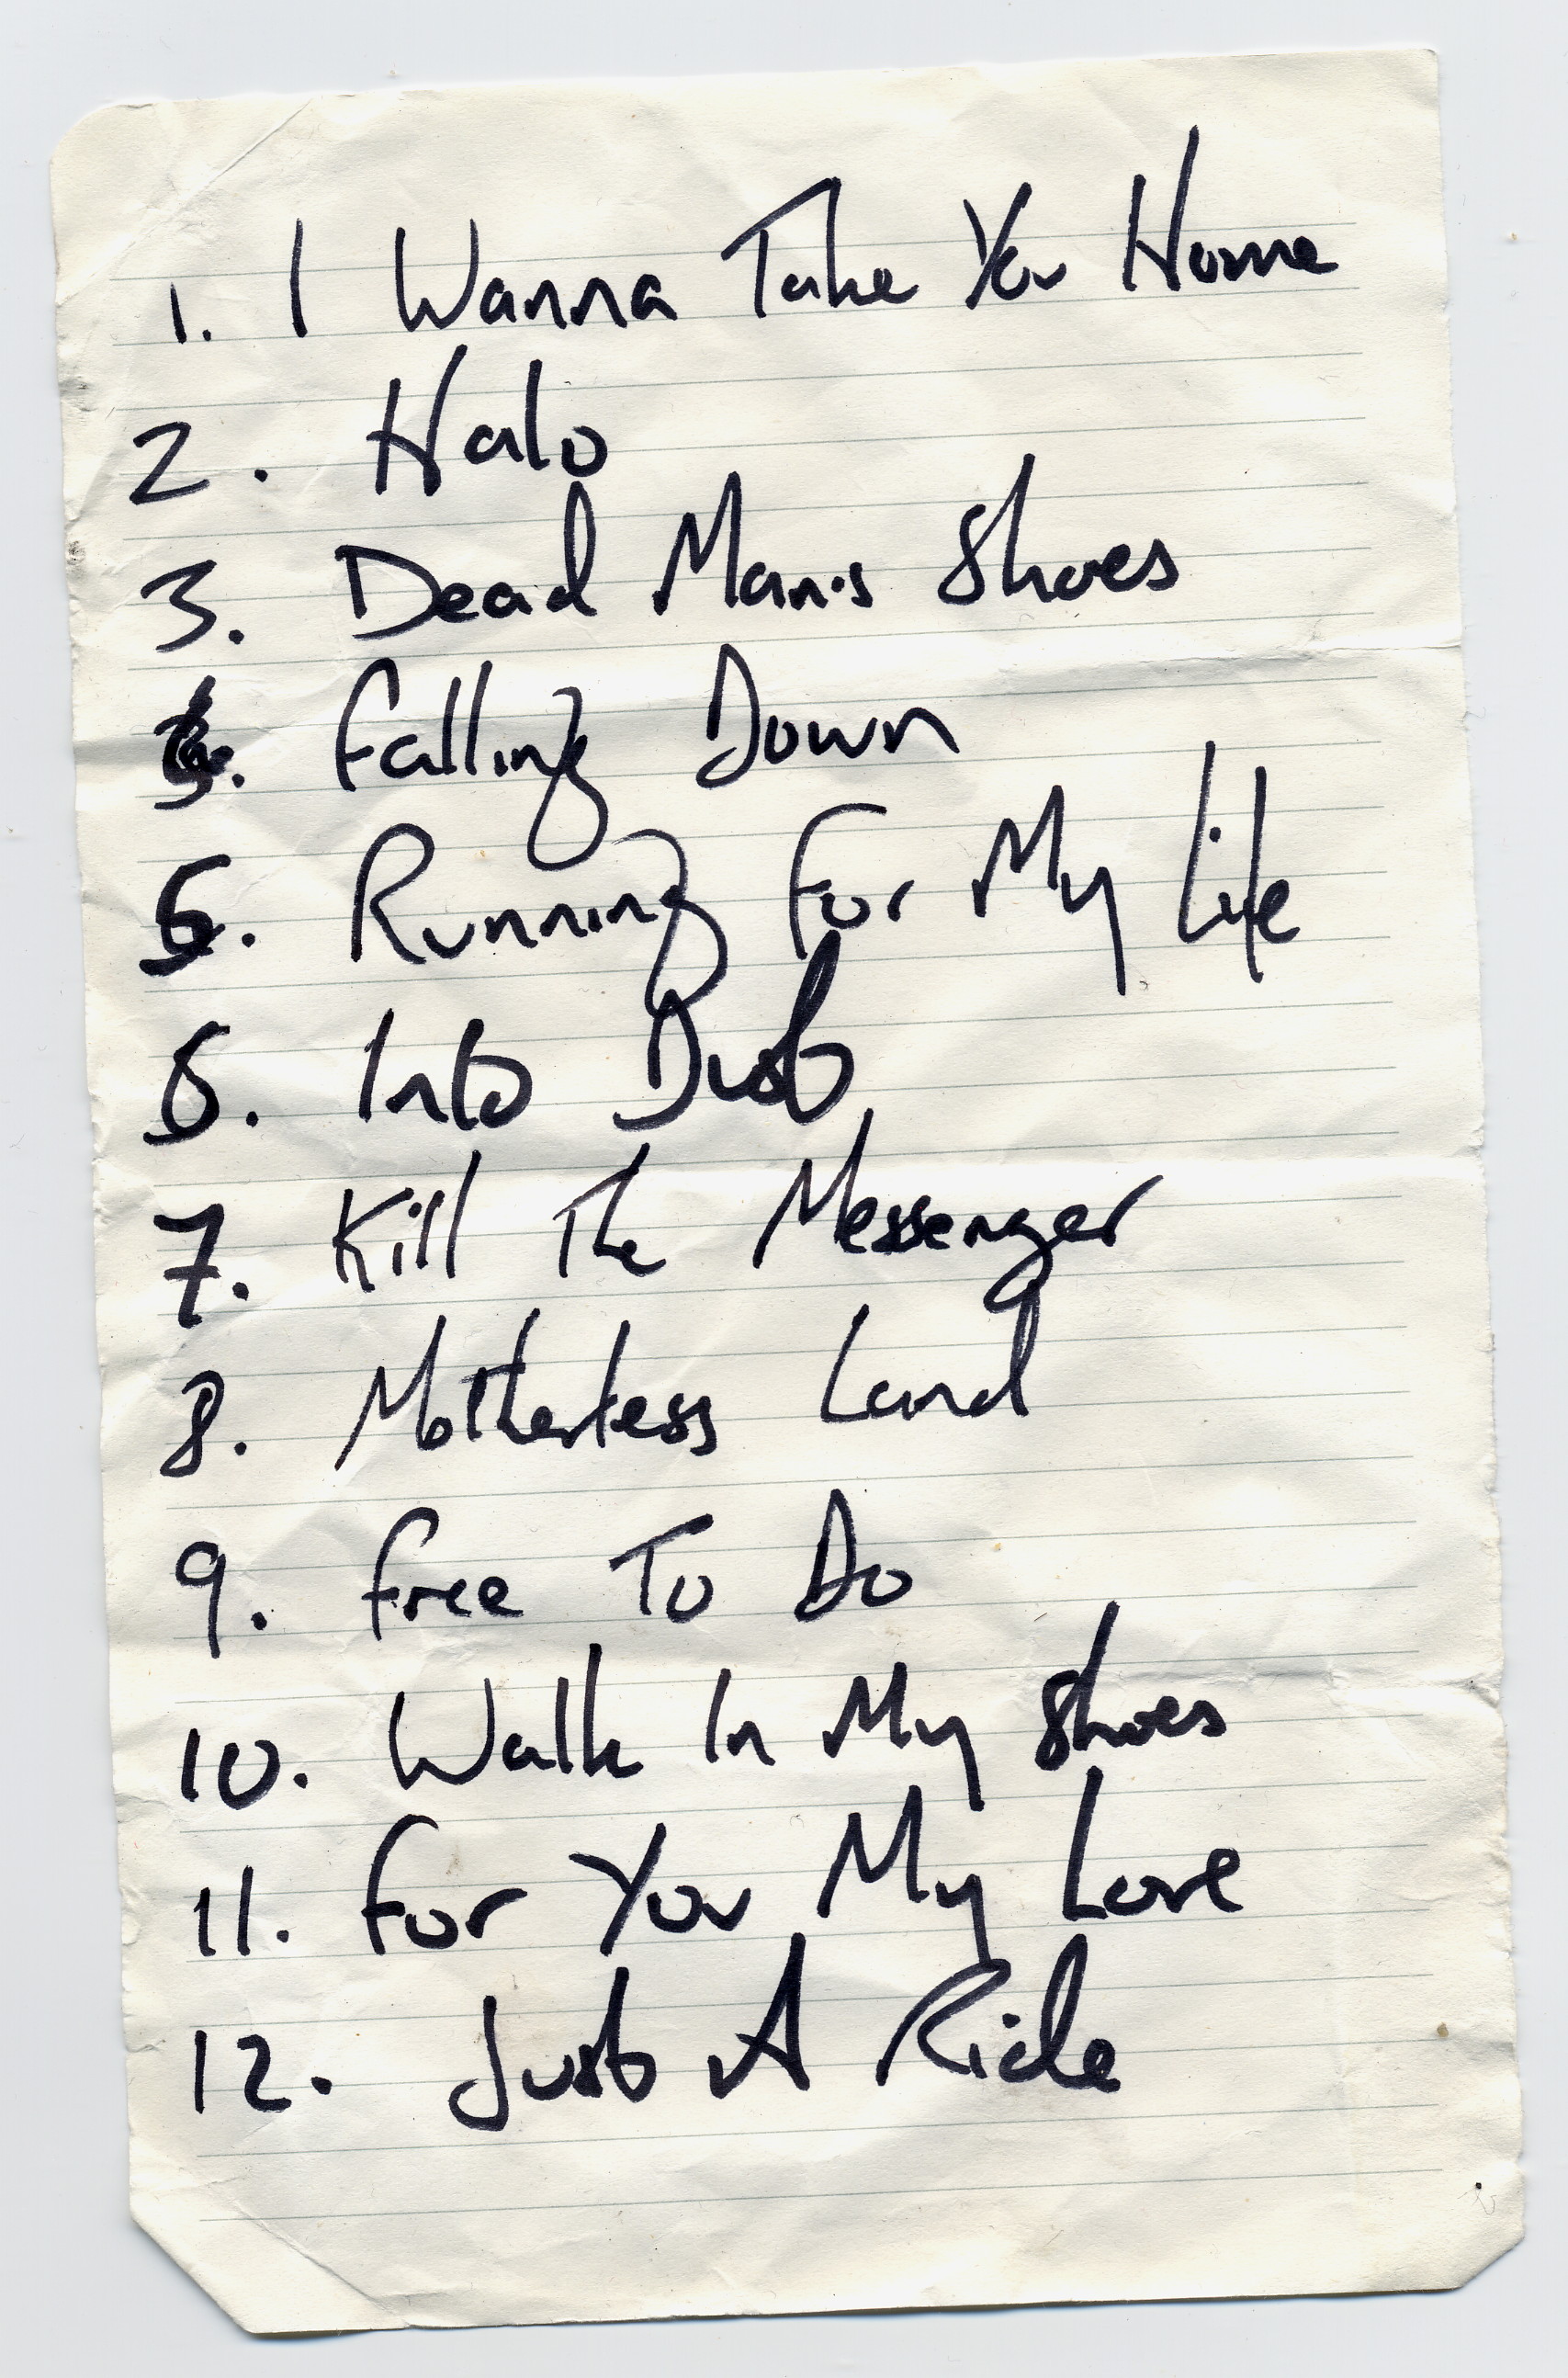 1. I Wanna Take You Home
2. Halo
3. Dead Man's Shoes
4. Falling Down
5. Running For My Life
6. Into Dust
7. Kill The Messenger
8. Motherless Land
9. Free To Do
10. Walk In My Shoes
11. For You My Love
12. Just A Ride